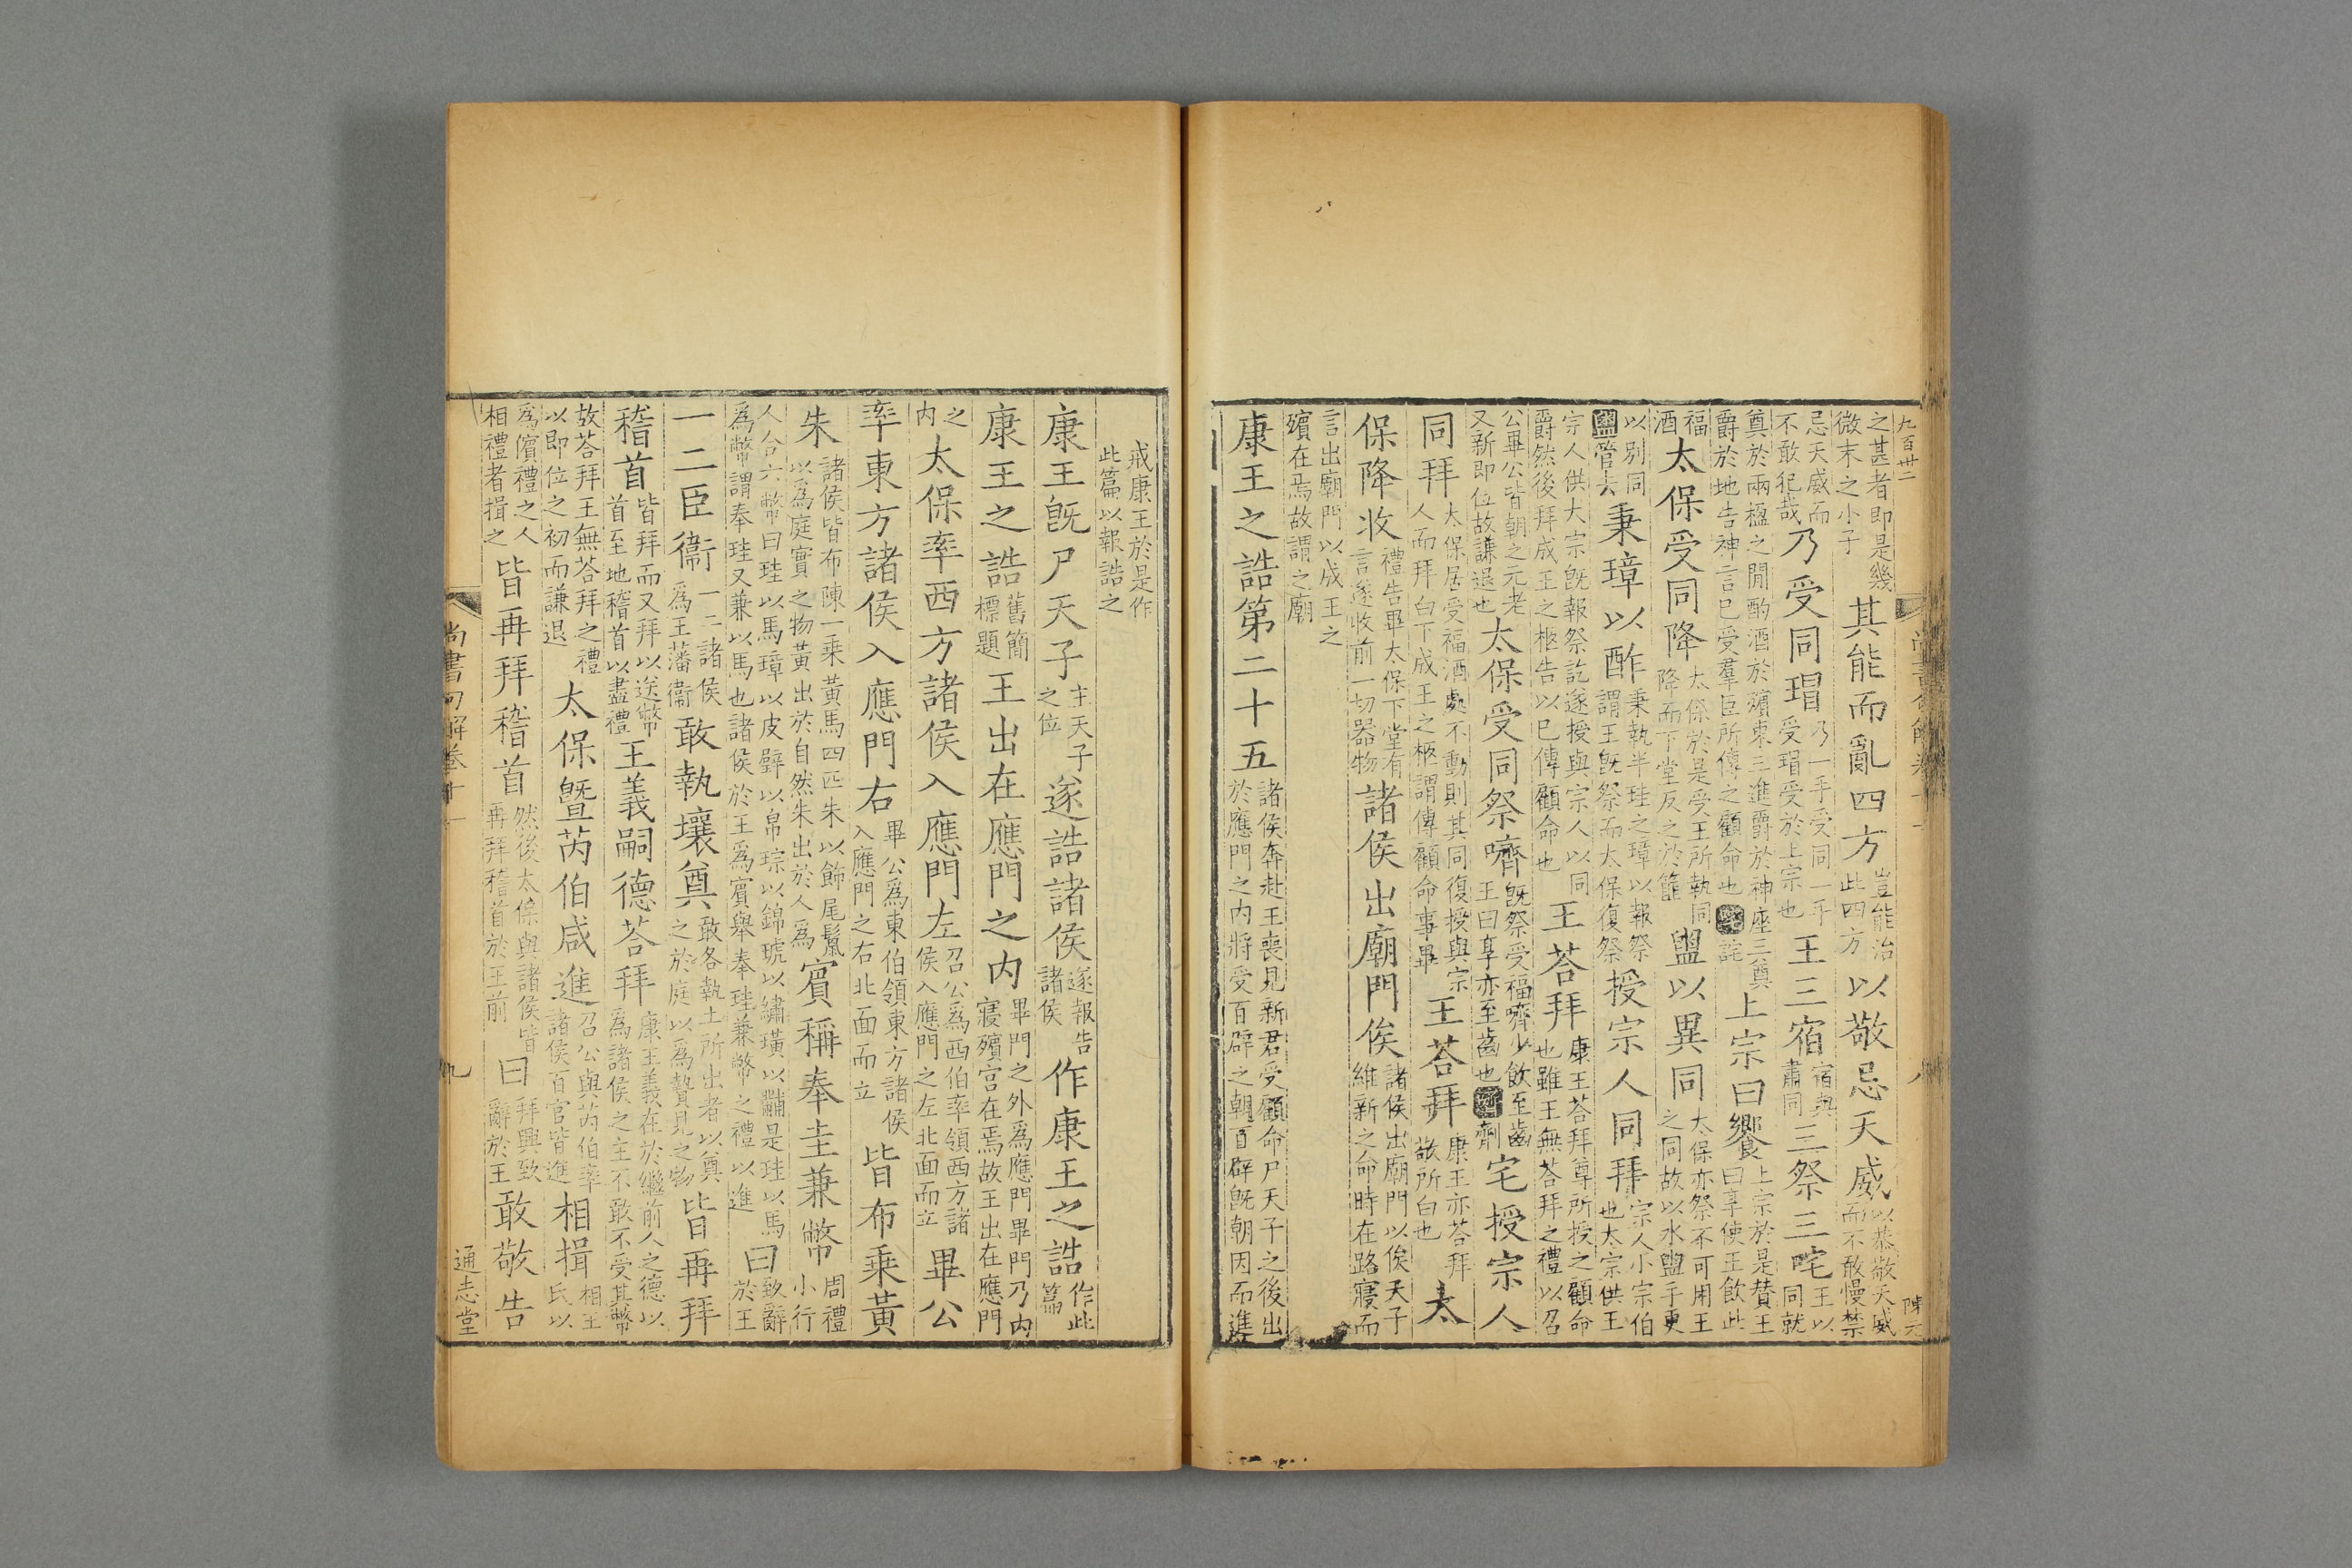 九百卅二
之甚者即是幾微末之小子其能而亂四方豈能治此四方以敬忌天威以恭敬天威而不敢慢禁
忌天威而不敢犯哉乃受同瑁乃一手受同一手受瑁受於上宗也王三宿宿與肅同三祭三咤王以同就
奠於兩楹之間酌酒於殯東三進爵於神座三奠爵於地告神言已受羣臣所傳之顧命也咤詫上宗曰饗上宗於是贊王曰享使王飲此
福酒太保受同降太保於是受王所執同降而下堂反之於篚盥以異同太保亦祭不可用王之同故以水盥手更
以別同盥管去秉璋以酢秉執半珪之璋以報祭謂王旣祭而太保復祭授宗人同拜宗人小宗伯也大宗供王
宗人供大宗旣報祭訖遂授與宗人以同爵然後拜成王之柩告以已傳顧命也王荅拜康王荅拜尊所授之顧命也雖王無荅拜之禮以召
公畢公皆朝之元老又新即位故謙退也太保受同祭嚌旣祭受福嚌少飲至齒王曰享亦至齒也嚌劑宅授宗人
同拜太保居受福酒處不動則其同復授與宗人而拜白下成王之柩謂傳顧命事畢王荅拜康王亦荅拜敬所白也太
保降收禮告畢太保下堂有言遂收前一切器物諸侯出廟門俟諸侯出廟門以俟天子維新之命時在路寢而
言出廟門以成王之殯在焉故謂之廟
康王之誥第二十五諸侯奔赴王喪見新君受顧命尸天子之後出於應門之内將受百辟之朝百辟旣朝因而進
戒康王於是作此篇以報誥之
康王旣尸天子主天子之位遂誥諸侯遂報告諸侯作康王之誥作此篇
康王之誥舊簡標題王出在應門之内畢門之外爲應門畢門乃内寢殯宮在焉故王出在應門
之内太保率西方諸侯入應門左召公爲西伯率領西方諸侯入應門之左北面而立畢公
率東方諸侯入應門右畢公爲東伯領東方諸侯入應門之右北面而立皆布乗黃
朱諸侯皆布陳一乗黃馬四匹朱以飾尾鬣以爲庭實之物黃出於自然朱出於人爲賓稱奉圭兼幣周禮小行
人合六幣曰珪以馬璋以皮璧以帛琮以錦琥以繡璜以黼是珪以馬爲幣謂奉珪又兼以馬也諸侯於王爲賓舉奉珪兼幣之禮以進曰致辭於王
一二臣衞一二諸侯爲王藩衞敢執壤奠敢各執土所出者以奠之於庭以爲贄見之物皆再拜
稽首皆拜而又拜以送幣首至地稽首以盡禮王義嗣德荅拜康王義在於繼前人之德以爲諸侯之主不敢不受其幣
故荅拜王無荅拜之禮以即位之初而謙退太保曁芮伯咸進召公與芮伯率諸侯百官皆進相揖相王氏以
爲儐禮之人相禮者揖之皆再拜稽首然後太保與諸侯皆再拜稽首於王前曰拜興致辭於王敢敬告
尚書句解卷十一
九
通志堂